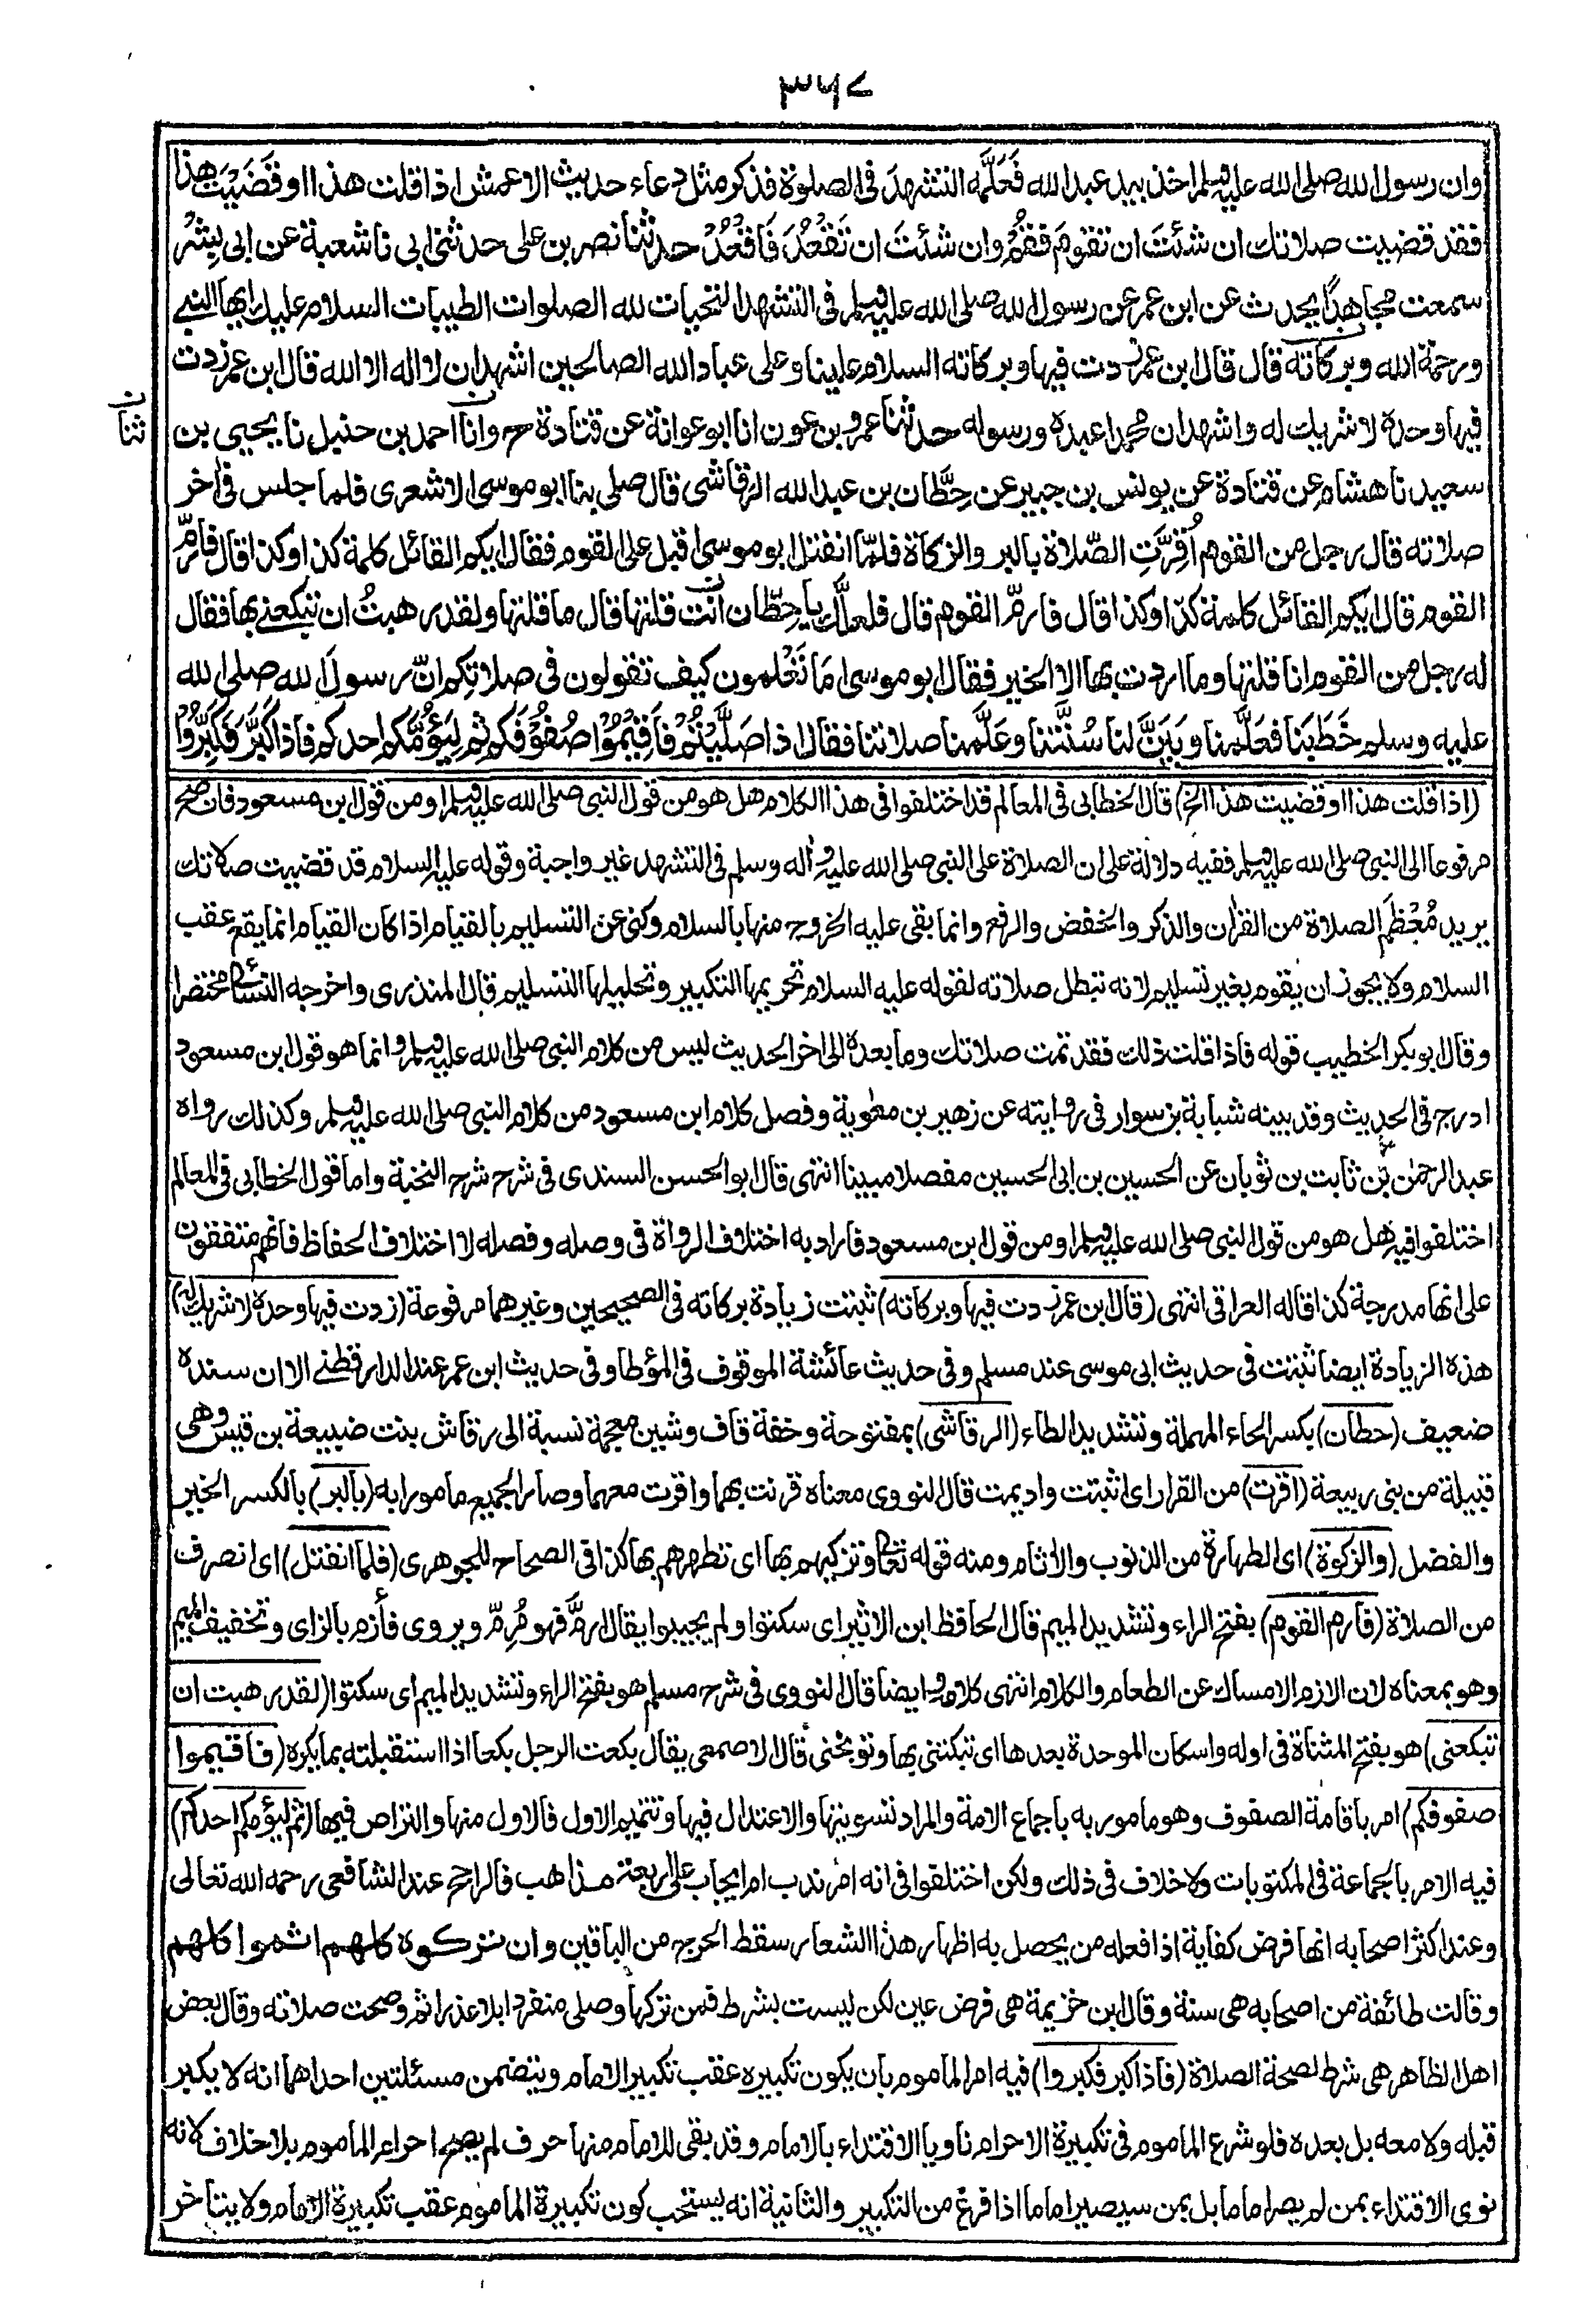 ٣٦٧
وان رسول الله صلى الله عليه وسلم اخذ بيد عبد الله فَعَلَّمَه التشهدَ فى الصلوة فذكر مثل دعاء حديث الاعمش اذا قلت هذا او قَضَيْتَ هذا
فقد قضيت صلاتك ان شئتَ ان تقومَ فقُمْ وان شئتَ ان تَقْعُدَ فَاقْعُدْ حدثنا نصر بن على حدثنى ابى نا شعبة عن ابى بِشْرٍ
سمعت مجاهدًا يحدث عن ابن عمر عن رسول الله صلى الله عليه وسلم فى التشهد التحيات لله الصلوات الطيبات السلام عليك ايها النبى
ورحمة الله وبركاته قال قال ابن عمر زدت فيها وبركاته السلام علينا وعلى عباد الله الصالحين اشهد ان لا اله الا الله قال ابن عمر زدت
فيها وحده لا شريك له واشهد ان محمدا عبده ورسوله حدثنا عمرو بن عون انا ابو عوانة عن قتادة ح وانا احمد بن حنبل نا يحيى بن
ن ثنا
سعيد نا هشام عن قتادة عن يونس بن جبير عن حِطَّان بن عبد الله الرقاشى قال صلى بنا ابو موسى الاشعرى فلما جلس فى اخر
صلاته قال رجل من القوم اُقِرَّتِ الصّلاة بالبر والزكاة فلمّا انفتل ابو موسى اقبل على القوم فقال ايكم القائل كلمة كذا وكذا قال فارمّ
القوم قال ايكم القائل كلمة كذا وكذا قال فارمّ القوم قال فلعلَّك يا حِطّان انت قلتها قال ما قلتها ولقد رهبتُ ان تبكعنى بها فقال
له رجل من القوم انا قلتها وما اردت بها الا الخير فقال ابو موسى اَمَا تَعْلمون كيف تقولون فى صلاتكم انّ رسولَ الله صلى الله
عليه وسلم خَطَبَنا فعَلَّمنا وبَيَنَّ لنا سُنَّتنا وعَلَّمنا صلاتنا فقال اذا صَلَّيْتُمْ فاَقِيْمُوْا صُفُوْفَكم ثم لِيَؤُمَّكم احدكم فاذا كَبَّرَ فَكَبِّرُوْا
(اذا قلت هذا او قضيت هذا الخ) قال الخطابى فى المعالم قد اختلفوا فى هذا الكلام هل هو من قول النبى صلى الله عليه وسلم او من قول ابن مسعود فان صح
مرفوعا الى النبى صلى الله عليه وسلم ففيه دلالة على ان الصلاة على النبى صلى الله عليه واٰله وسلم فى التشهد غير واجبة وقوله عليه السلام قد قضيت صلاتك
يريد مُعْظَمَ الصلاة من القراٰن والذكر والخفض والرفع وانما بقى عليه الخروج منها بالسلام وكنى عن التسليم بالقيام اذا كان القيام انما يقع عقب
السلام ولا يجوز ان يقوم بغير تسليم لانه تبطل صلاته لقوله عليه السلام تحريمها التكبير وتحليلها التسليم قال المنذرى واخرجه النسائى مختصرا
وقال ابو بكر الخطيب قوله فاذا قلت ذلك فقد تمت صلاتك وما بعده الى اخر الحديث ليس من كلام النبى صلى الله عليه وسلم وانما هو قول ابن مسعود
ادرج فى الحديث وقد بينه شبابة بن سوار فى روايته عن زهير بن معٰوية وفصل كلام ابن مسعود من كلام النبى صلى الله عليه وسلم وكذلك رواه
عبد الرحمٰن بن ثابت بن ثوبان عن الحسين بن ابى الحسين مفصلا مبينا انتهى قال ابو الحسن السندى فى شرح شرح النخبة واما قول الخطابى فى المعالم
اختلفوا فيه هل هو من قول النبى صلى الله عليه وسلم او من قول ابن مسعود فاراد به اختلاف الرواة فى وصله وفصله لا اختلاف الحفاظ فانهم متفقون
على انها مدرجة كذا قاله العراقى انتهى (قال ابن عمر زدت فيها وبركاته) ثبتت زيادة بركاته فى الصحيحين وغيرهما مرفوعة (زدت فيها وحده لا شريك له)
هذه الزيادة ايضا ثبتت فى حديث ابى موسى عند مسلم وفى حديث عائشة الموقوف فى المؤطا وفى حديث ابن عمر عند الدارقطنى الا ان سنده
ضعيف (حطان) بكسر الحاء المهملة وتشديد الطاء (الرقاشى) بمفتوحة وخفة قاف وشين معجمة نسبة الى رقاش بنت ضبيعة بن قيس وهى
قبيلة من بنى ربيعة (اقرت) من القرار اى اثبتت واديمت قال النووى معناه قرنت بهما واقرت معهما وصار الجميع مامورا به (بالبر) بالكسر الخير
والفضل (والزكوة) اى الطهارة من الذنوب والاٰثام ومنه قوله تعالى وتزكيهم بها اى تطهرهم بها كذا فى الصحاح للجوهرى (فلما انفتل) اى انصرف
من الصلاة (فارم القوم) بفتح الراء وتشديد الميم قال الحافظ ابن الاثير اى سكتوا ولم يجيبوا يقال ارمَّ فهو مُرِمّ ويروى فأزم بالزاى وتخفيف الميم
وهو بمعناه لان الازم الامساك عن الطعام والكلام انتهى كلامه وايضا قال النووى فى شرح مسلم هو بفتح الراء وتشديد الميم اى سكتوا (لقد رهبت ان
تبكعنى) هو بفتح المثناة فى اوله واسكان الموحدة بعدها اى تبكتنى بها وتوبخنى قال الاصمعى يقال بكعت الرجل بكعا اذا استقبلته بما يكره (فاقيموا
صفوفكم) امر باقامة الصفوف وهو مامور به باجماع الامة والمراد تسويتها والاعتدال فيها وتتميم الاول فالاول منها والتراص فيها (ثم ليؤمكم احدكم)
فيه الامر بالجماعة فى المكتوبات ولا خلاف فى ذلك ولكن اختلفوا فى انه امر ندب ام ايجاب على اربعة مذاهب فالراجح عند الشافعى رحمه الله تعالى
وعند اكثر اصحابه انها فرض كفاية اذا فعله من يحصل به اظهار هذا الشعار سقط الحرج من الباقين وان تركوه كلهم اثموا كلهم
وقالت طائفة من اصحابه هى سنة وقال ابن خزيمة هى فرض عين لكن ليست بشرط فمن تركها وصلى منفردا بلا عذر اثم وصحت صلاته وقال بعض
اهل الظاهر هى شرط لصحة الصلاة (فاذا كبر فكبروا) فيه امر الماموم بان يكون تكبيره عقب تكبير الامام ويتضمن مسئلتين احداهما انه لا يكبر
قبله ولا معه بل بعده فلو شرع الماموم فى تكبيرة الاحرام ناويا الاقتداء بالامام وقد بقى للامام منها حرف لم يصح احرام الماموم بلا خلاف لانه
نوى الاقتداء بمن لم يصر اماما بل بمن سيصير اماما اذا فرغ من التكبير والثانية انه يستحب كون تكبيرة الماموم عقب تكبيرة الامام ولا يتاخر